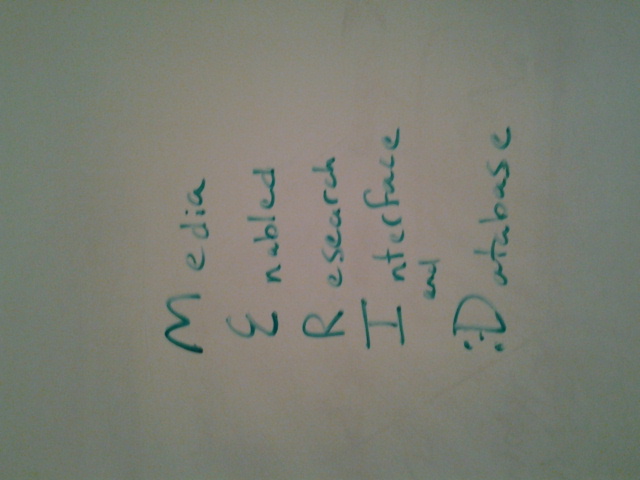 Media
Enabled
Research
Interface
and
:Database